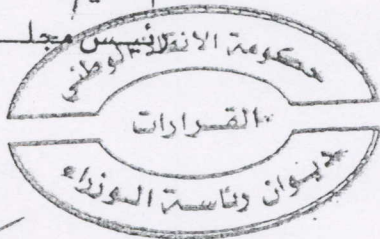 رئيس مجلـ
حكومة الانقاذ الوطني
القرارات
ديوان رئاسة الوزراء